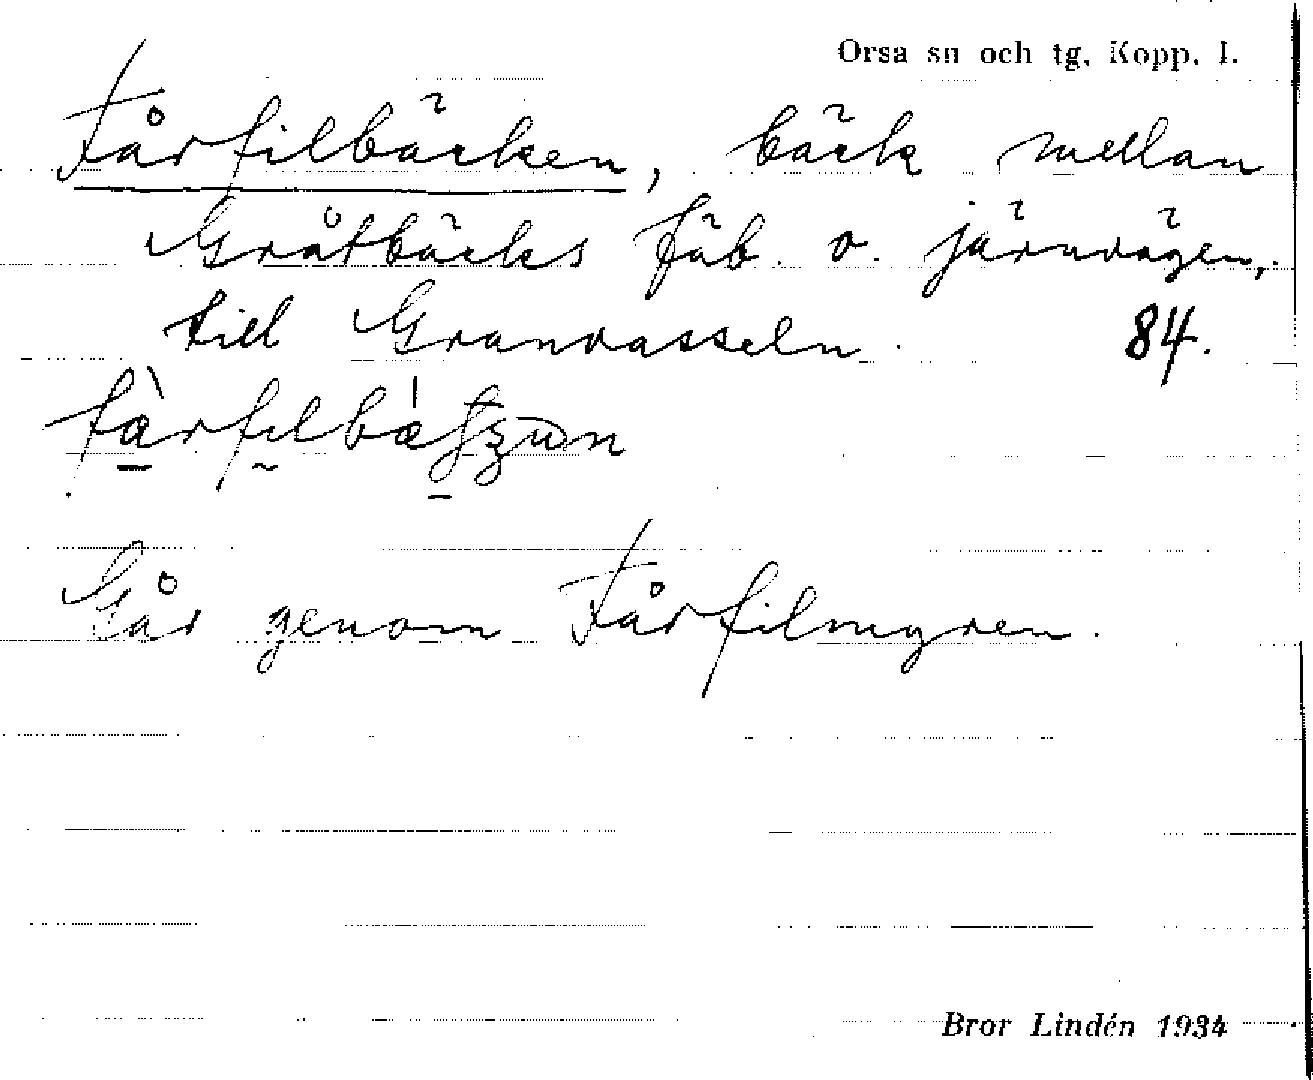 Orsa sn och tg, Kopp. l.
Fårfilbäcken, bäck mellan
Gråtbäcks fäb. o. järnvägen,
till Granvasseln. 84.
Går genom Fårfilmyren.
Bror Lindén 1934